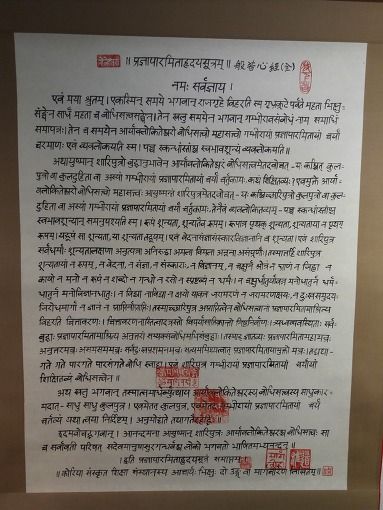 ॥ प्रज्ञापारमिताहृदयसूत्रम् ॥ 般若心経(全)
नमः सर्वज्ञाय ।
एवं मया श्रुतम् । एकस्मिन् समये भगवान् राजगृहे विहरति स्म गृध्रकूटे पर्वते महता भिक्षु-
संङ्घेन सार्धं महता च बोधिसत्त्वसङ्घेन । तेन खलु समयेन भगवान् गम्भीरावसंबोधं नाम समाधिं
समापन्नः । तेन च समयेन आर्यावलोकितेश्वरो बोधिसत्त्वो महासत्त्वो गम्भीरायां प्रज्ञापारमितायां चर्यां
चरमाणः एवं व्यवलोकयति स्म । पञ्च स्कन्धांस्तांश्च स्वभावशून्यं व्यवलोकयति ॥
अथायुष्मान् शारिपुत्रो बुद्धानुभावेन आर्यावलोकितेश्वरं बोधिसत्त्वमेतदवोचत्- यः कश्चित् कुल-
पुत्रो वा कुलदुहिता वा अस्यां गम्भीरायां प्रज्ञापारमितायां चर्यां चर्तुकामः, कथं शिक्षितव्यः ? एवमुक्ते आर्या-
वलोकितेश्वरो बोधिसत्त्वो महासत्त्वः आयुष्मन्तं शारिपुत्रमेतदवोचत्- यः कश्चिच्छारिपुत्र कुलपुत्रो वा कुल-
दुहिता वा अस्यां गम्भीरायां प्रज्ञापारमितायां चर्यां चर्तुकामः, तेनैवं व्यवलोकितव्यम्- पञ्च स्कन्धांस्तांश्च
स्वभावशून्यान् समनुपश्यति स्म । रूपं शून्यता, शून्यतैव रूपम् । रूपान्न पृथक् शून्यता, शून्यताया न पृथग्
रूपम् । यद्रूपं सा शून्यता, या शून्यता तद्रूपम् । एवं वेदनासंज्ञासंस्कारविज्ञानानि च शून्यता । एवं शारिपुत्र
सर्वधर्माः शून्यतालक्षणा अनुत्पन्ना अनिरुद्धा अमला विमला अनूना असंपूर्णाः । तस्मात्तर्हि शारिपुत्र
शून्यतायां न रूपम्, न वेदना, न संज्ञा, न संस्काराः, न विज्ञानम्, न चक्षुर्न श्रोत्रं न घ्राणं न जिह्वा न
कायो न मनो न रूपं न शब्दो न गन्धो न रसो न स्प्रष्टव्यं न धर्मः । न चक्षुर्धातुर्यावन्न मनोधातुर्न धर्म-
धातुर्न मनोविज्ञानधातुः । न विद्या नाविद्या न क्षयो यावन्न जरामरणं न जरामरणक्षयः, न दुःखसमुदय-
निरोधमार्गा न ज्ञानं न प्राप्तिर्नाप्राप्तिः । तस्माच्छारिपुत्र अप्राप्तित्वेन बोधिसत्त्वानां प्रज्ञापारमितामाश्रित्य
विहरति चित्तावरणः । चित्तावरणनास्तित्वादत्रस्तो विपर्यासातिक्रान्तो निष्ठनिर्वाणः । त्र्यध्वव्यवस्थिताः सर्व-
बुद्धाः प्रज्ञापारमितामाश्रित्य अनुत्तरां सम्यक्संबोधिमभिसंबुद्धाः । तस्माद् ज्ञातव्यः प्रज्ञापारमितामहामन्त्रः
अनुत्तरमन्त्रः असमसममन्त्रः सर्वदुःखप्रशमनमन्त्रः सत्यममिथ्यत्वात् प्रज्ञापारमितायामुक्तो मन्त्रः । तद्यथा-
गते गते पारगते पारसंगते बोधि स्वाहा । एवं शारिपुत्र गम्भीरायां प्रज्ञापारमितायां चर्यायां
शिक्षितव्यं बोधिसत्त्वेन ॥
अथ खलु भगवान् तस्मात्समाधेर्व्युत्थाय आर्यावलोकितेश्वरस्य बोधिसत्त्वस्य साधुकार-
मदात्- साधु साधु कुलपुत्र । एवमेतत् कुलपुत्र, एवमेतद् गम्भीरायां प्रज्ञापारमितायां चर्यं
चर्तव्यं यथा त्वया निर्दिष्टम् । अनुमोद्यते तथागतैरर्हद्भिः ॥
इदमवोचद्भगवान् । आनन्दमना आयुष्मान् शारिपुत्रः आर्यावलोकितेश्वरश्च बोधिसत्त्वः सा
च सर्वावती परिषत् सदेवमानुषासुरगन्धर्वश्च लोको भगवतो भाषितमभ्यनन्दन् ॥
। इति प्रज्ञापारमिताहृदयसूत्रं समाप्तम् ।
॥ कोरिया संस्कृत शिक्षा संस्थानस्य आचार्य भिक्षुः